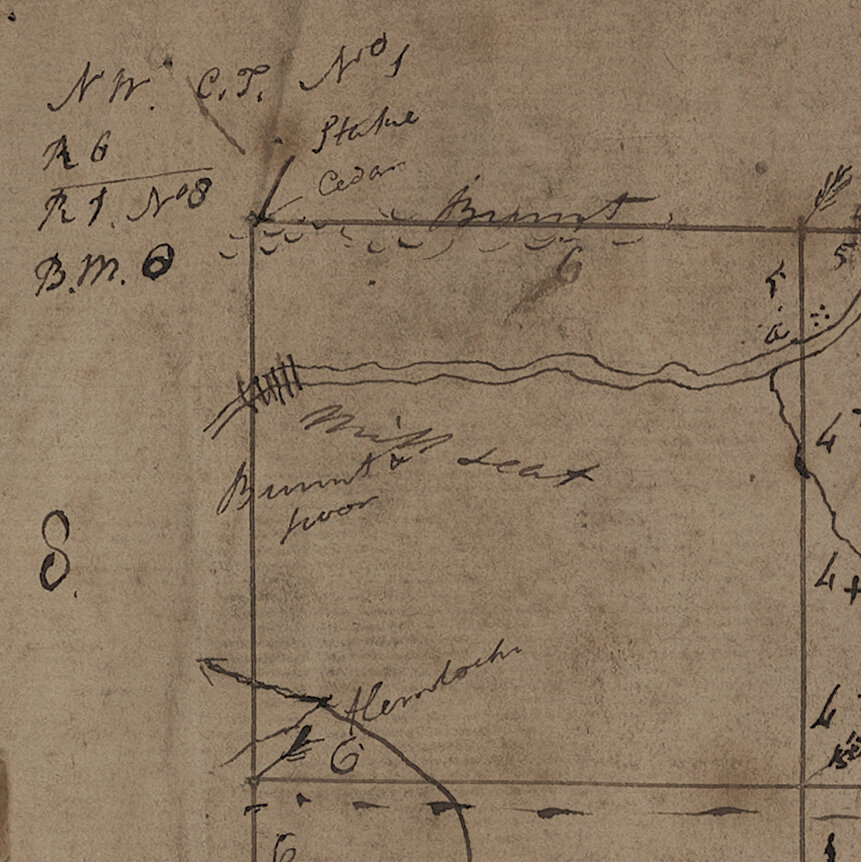 N W. C. P. No 1
R 6
R 1. No 8
B. M. 6
Stake
Cedar
Burnt
6
5
4
Mill seat
Burnt &
poor
8
4
Hemlock
4
6
6